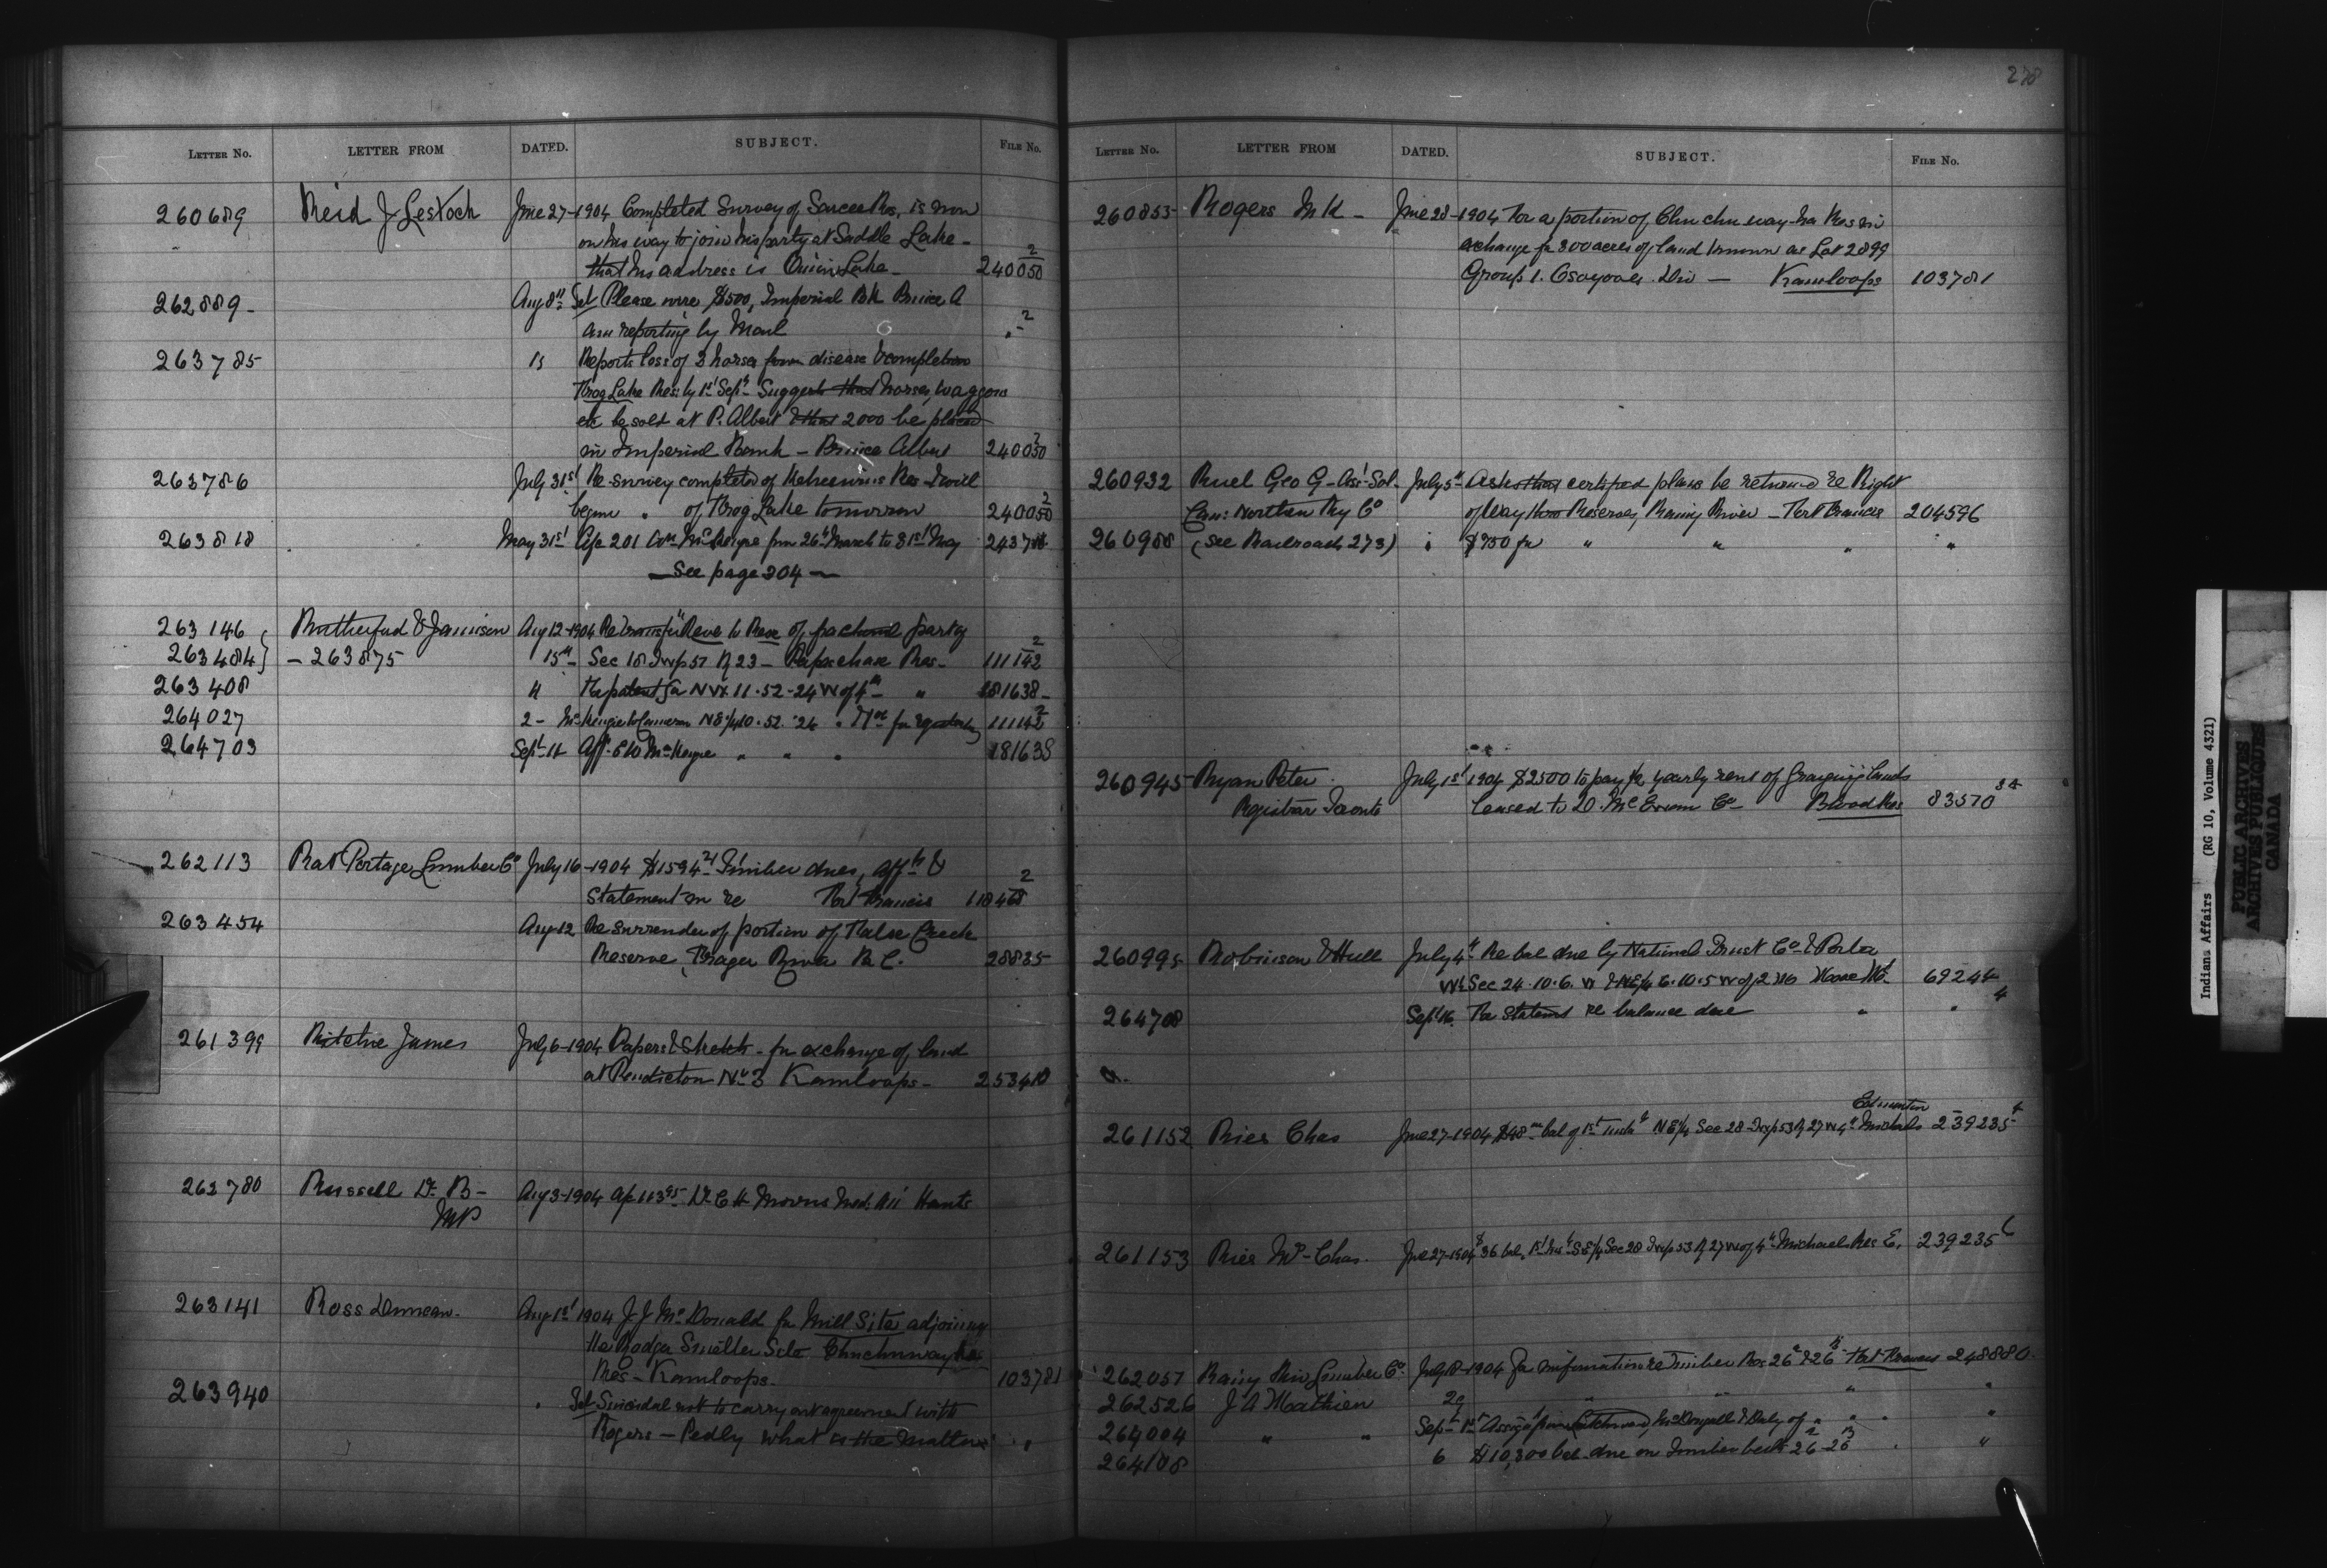 278
LETTER No. LETTER FROM DATED. SUBJECT. FILE No.
260689 Reid J Lestock June 27-1904 Completed Survey of Sarcee Res, is now
on his way to join his party at Saddle Lake -
that his address is Onion Lake - 240050 2
262889 - Aug 8th Tel Please wire $500, Imperial Bk Prince A
am reporting by Mail " - 2
263785 13 Reports loss of 3 horses from disease & completion
Frog Lake Res: by 1st Sept - Suggests that horses, waggons
etc be sold at P. Albert & that 2000 be placed
in Imperial Bank - Prince Albert 240050 2
263786 July 31st Re-survey completed of Res - I will
begin " of Frog Lake tomorrow 240050 2
263818 May 31st a/c 201 from 26th March to 31st May
- See page 304 -
263146 Rutherford & Jamieson Aug 12-1904 Re transfer Reve to Reve of party
263484 } - 263875 15th - Sec 18 Twp 51 R 23 - Papaschase Res - 111142 2
263408 4 For patent for NW¼ 11-52-24 W of 4th " 181638 -
264027 2 - McKenzie to Cameron NE¼ 10-52-24 " for 111142 2
264703 Sept 14 Aff- " " " 181638
262113 Rat Portage Lumber Co July 16-1904 $1594 21 Timber dues, affts &
Statement in re Fort Francis 118468 2
263454 Aug 12 Re surrender of portion of False Creek
Reserve, Frazer River B.C. 28835
261399 Ritchie James July 6-1904 Papers & Sketch - for exchange of land
at Penticton No 3 Kamloops - 253418
262780 Russell Dr B - Aug 3-1904 a/c 113 95 Dr C H Morris Med: Att Hants
MP
263141 Ross Duncan. Aug 1st 1904 J J McDonald for Mill Site adjoining
the Rodger Smelter Site Chuchuwayha
Res - Kamloops - 103781
263940 " Tel Suicidal not to carry out agreement with
Rogers - Pedly what is the matter " "
LETTER No. LETTER FROM DATED. SUBJECT. FILE No.
260853 Rogers M K - June 28-1904 For a portion of Chu chu way-ha Res in
exchange for 300 acres of land known as Lot 2899
Group 1. Osoyoos Div - Kamloops 103781
260932 Ruel Geo G - Asst Sol - July 5th Asks that certified plans be returned re Right
Can: Northern Ry Co of Way thro Reserves, Rainy River - Fort Frances 204596
260988 (See Railroads 273) " $750 for " " " "
260945 Ryan Peter July 1st 1904 $2500 to pay ½ yearly rent of Grazing lands
Registrar Toronto leased to D. McEwen Co - Blood Res 83570
260995 Robinson & Hull July 4th Re bal due by National Trust Co & Porter
W½ Sec 24-10-6. W & NE¼ 6-10-5 W of 2 M Moose Mt. 69244
264708 Sept 16. For Statemt re balance due " " 4
261152 Rier Chas June 27-1904 $48 bal of 1st inst NE¼ Sec 28 Twp 53 R 27 W 4th Michels Edmonton 239235
261153 Rier Mrs Chas. June 27-1904 $36 bal, 1st Inst SE¼ Sec 28 Twp 53 R 27 W of 4th Michael Res E. 239235
262057 Rainy Riv Lumber Co July 18-1904 for information re Timber Res 26 & 26 Fort Frances 248880
262526 J A Mathieu 29 " " " "
264004 " " Sept 1st McDougall & Daly of " " " "
264108 6 $10,300 bal due on Timber berth 26-26 " "
Indians Affairs (RG 10, Volume 4321)
PUBLIC ARCHIVES
ARCHIVES PUBLIQUES
CANADA